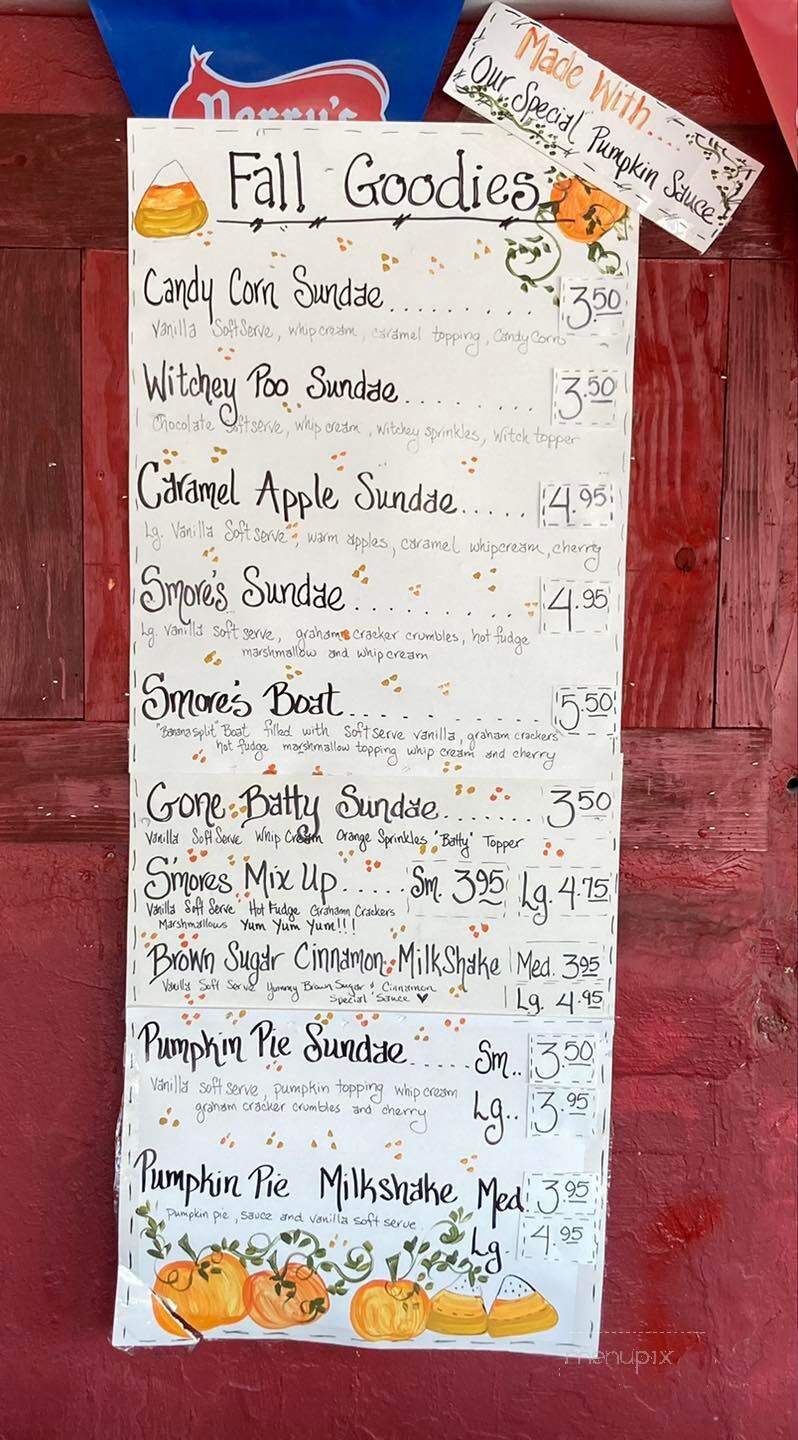 Perry's
Made With....
Our Special Pumpkin Sauce
Fall Goodies
Candy Corn Sundae......... 3.50
Vanilla SoftServe, whip cream, caramel topping, Candy Corn
Witchey Poo Sundae......... 3.50
Chocolate softserve, whip cream, witchey sprinkles, witch topper
Caramel Apple Sundae..... 4.95
Lg. Vanilla Soft serve, warm apples, caramel whipcream, cherry
Smore's Sundae......... 4.95
Lg. Vanilla soft serve, graham cracker crumbles, hot fudge
marshmallow and whip cream
Smore's Boat......... 5.50
"Banana split" Boat filled with soft serve vanilla, graham crackers
hot fudge marshmallow topping whip cream and cherry
Gone Batty Sundae....... 3.50
Vanilla Soft Serve Whip Cream Orange Sprinkles "Batty" Topper
S'mores Mix Up..... Sm. 3.95 Lg. 4.75
Vanilla Soft Serve Hot Fudge Grahamn Crackers
Marshmallows Yum Yum Yum!!!
Brown Sugar Cinnamon MilkShake Med. 3.95
Vanilla Soft Serve Yummy Brown Sugar & Cinnamon
Special Sauce ♥
Lg. 4.95
Pumpkin Pie Sundae..... Sm.. 3.50
Vanilla soft serve, pumpkin topping whip cream
graham cracker crumbles and cherry
Lg.. 3.95
Pumpkin Pie Milkshake Med. 3.95
Pumpkin pie, sauce and vanilla soft serve
Lg. 4.95
menupix